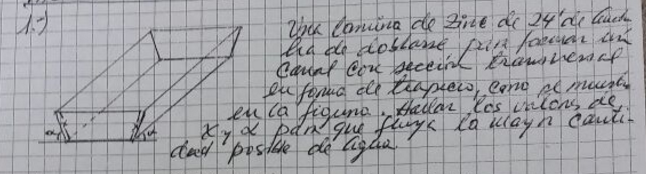 1.-) Una lamina de Zinc de 24' de Anch
ha de doblarse para formar un
Canal con sección transversal
en forma de trapecio, como se muestra
en la figura. Hallar los valores de
x y α para que fluya la mayor canti-
dad posible de agua
x x
α α